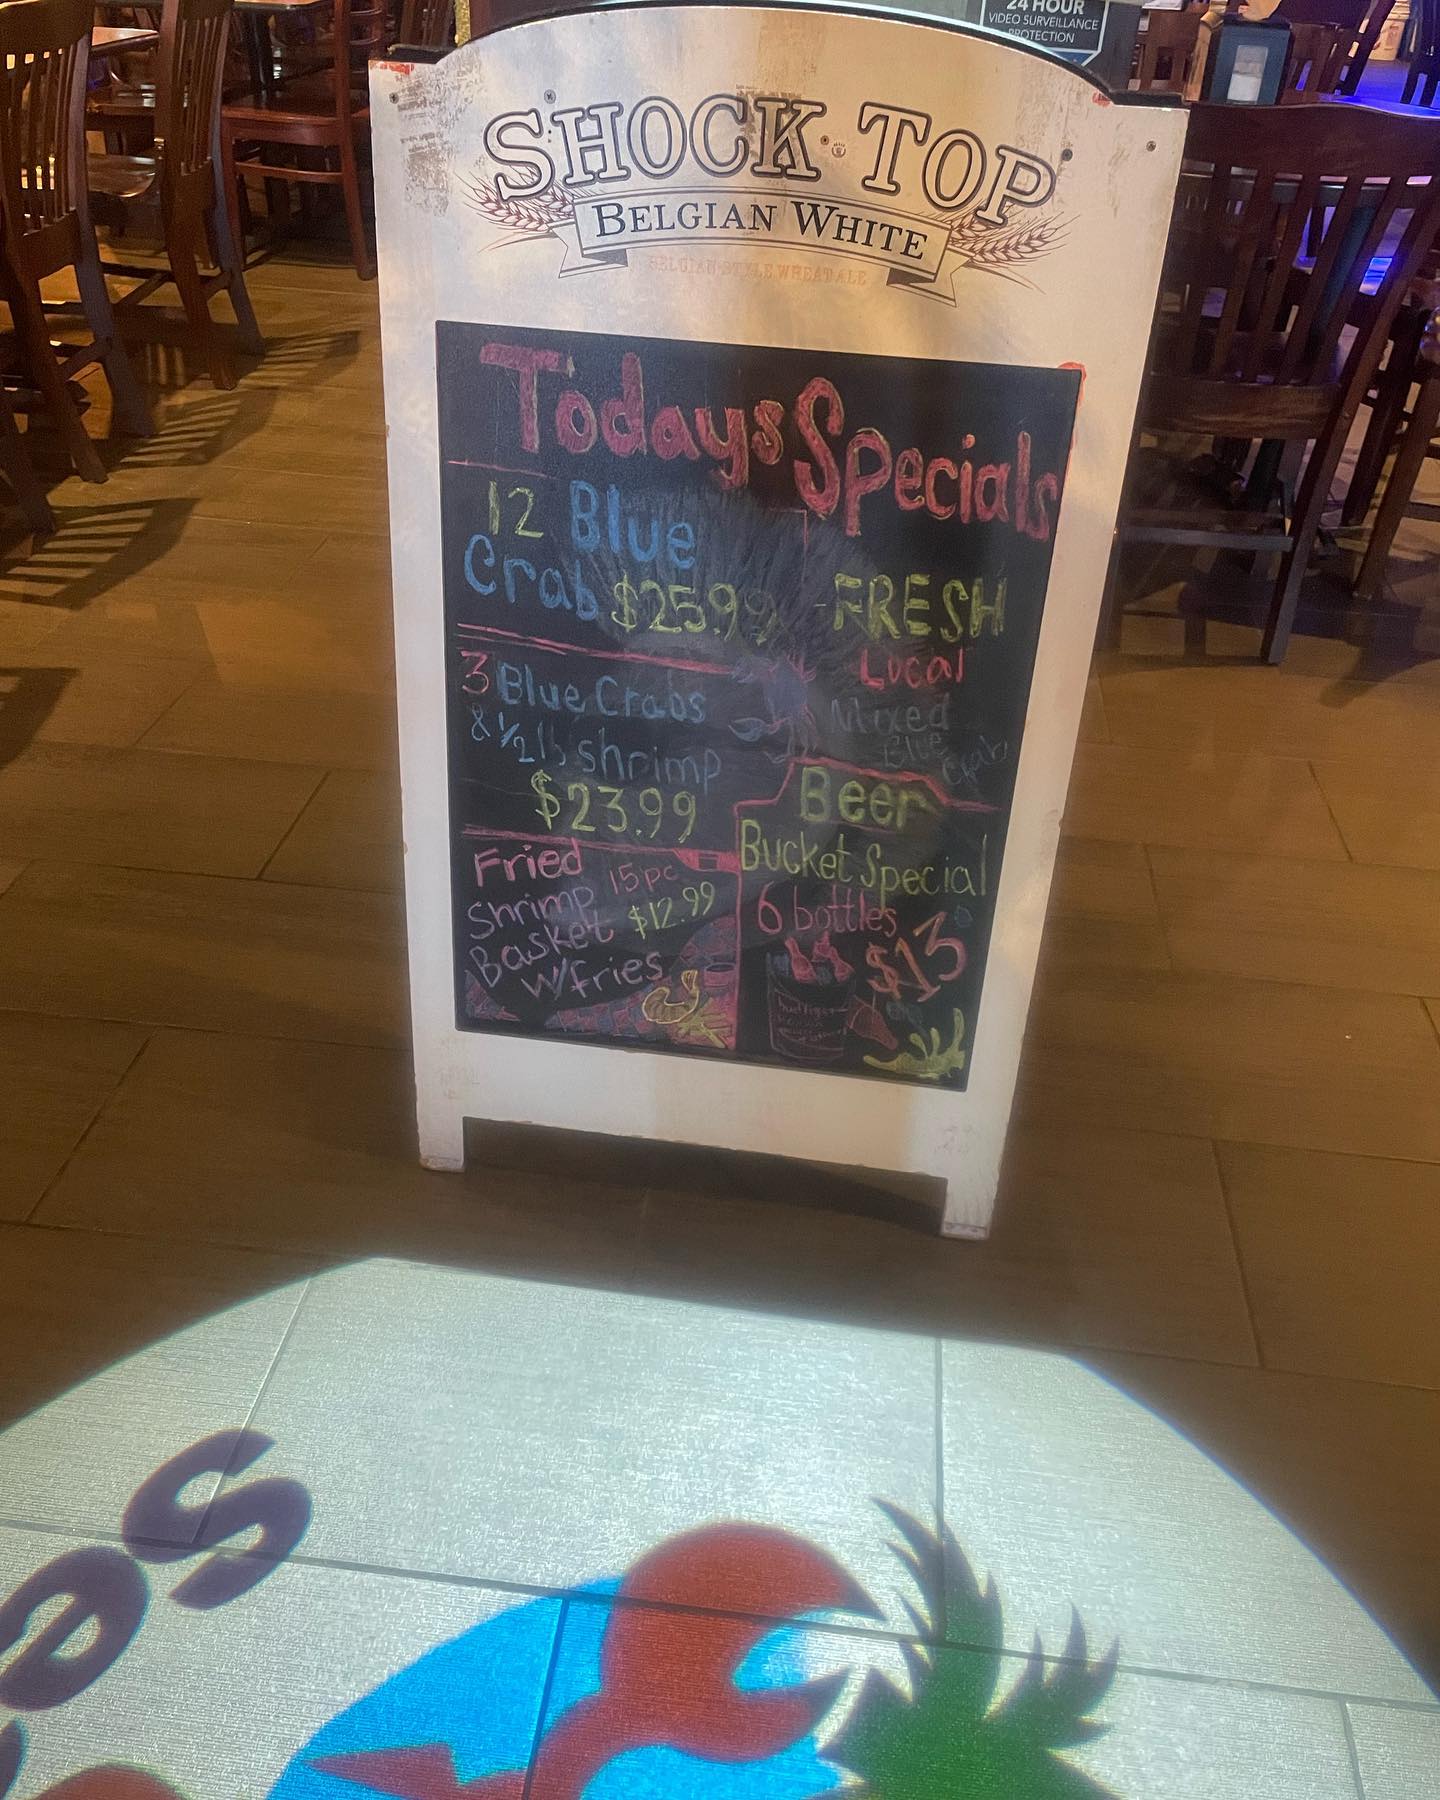 24 HOUR
VIDEO SURVEILLANCE
PROTECTION
SHOCK TOP
BELGIAN WHITE
BELGIAN-STYLE WHEAT ALE
Todays Specials
12 Blue
Crab $25.99
3 Blue Crabs
& 1/2 lb shrimp
$23.99
Fried
Shrimp 15pc
Basket $12.99
w/fries
-FRESH
Local
Mixed
Blue
Crabs
Beer
Bucket Special
6 bottles
$13
es